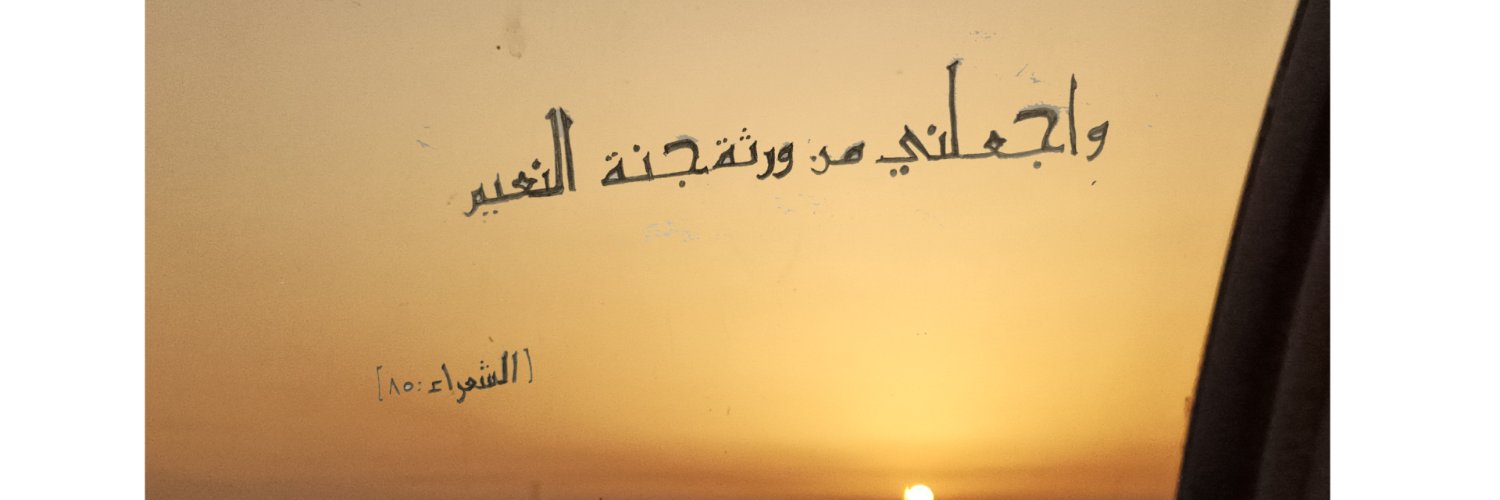 واجعلني من ورثة جنة النعيم
[الشعراء: ٨٥]